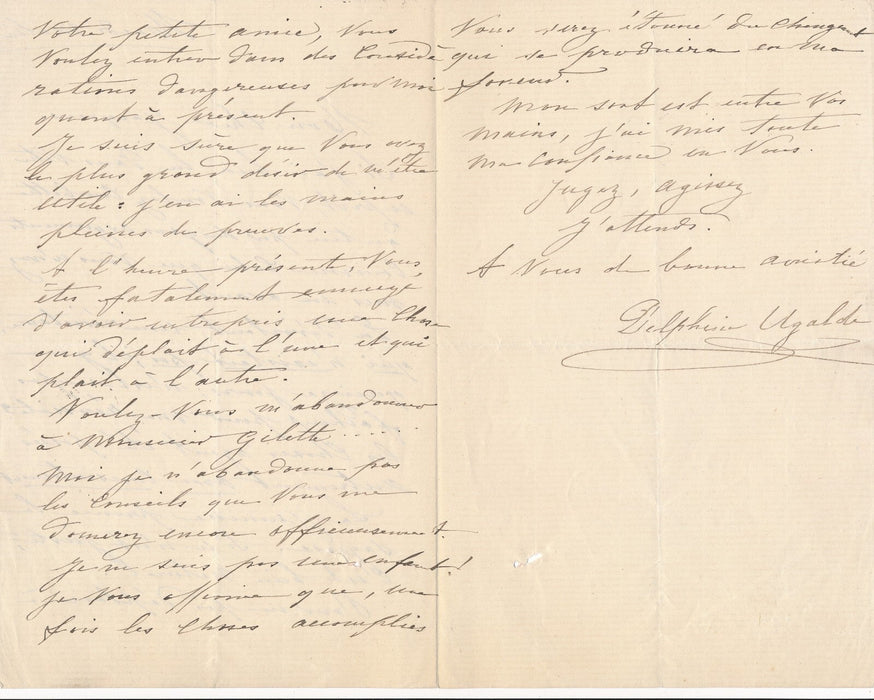 Votre petite amie, Vous
Voulez entrer dans des Considé
rations dangereuses pour moi
quant à présent.
Je suis sûre que Vous avez
le plus grand désir de m'être
utile : j'en ai les mains
pleines de preuves.
A l'heure présente, Vous
êtes fatalement ennuyé
d'avoir entrepris une Chose
qui déplait à l'une et qui
plait à l'autre.
Voulez-Vous m'abandonner
à Monsieur Gilette .....
Moi je n'abandonne pas
les Conseils que Vous me
donnerez encore officieusement.
Je ne suis pas une enfant !
je Vous affirme que, une
fois les Choses accomplies
Vous serez étonné du Changement
qui se produira en ma
faveur.
Mon sort est entre Vos
mains, j'ai mis toute
ma Confiance en Vous.
Jugez, agissez
J'attends.
A Vous de bonne amitié
Delphine Ugalde